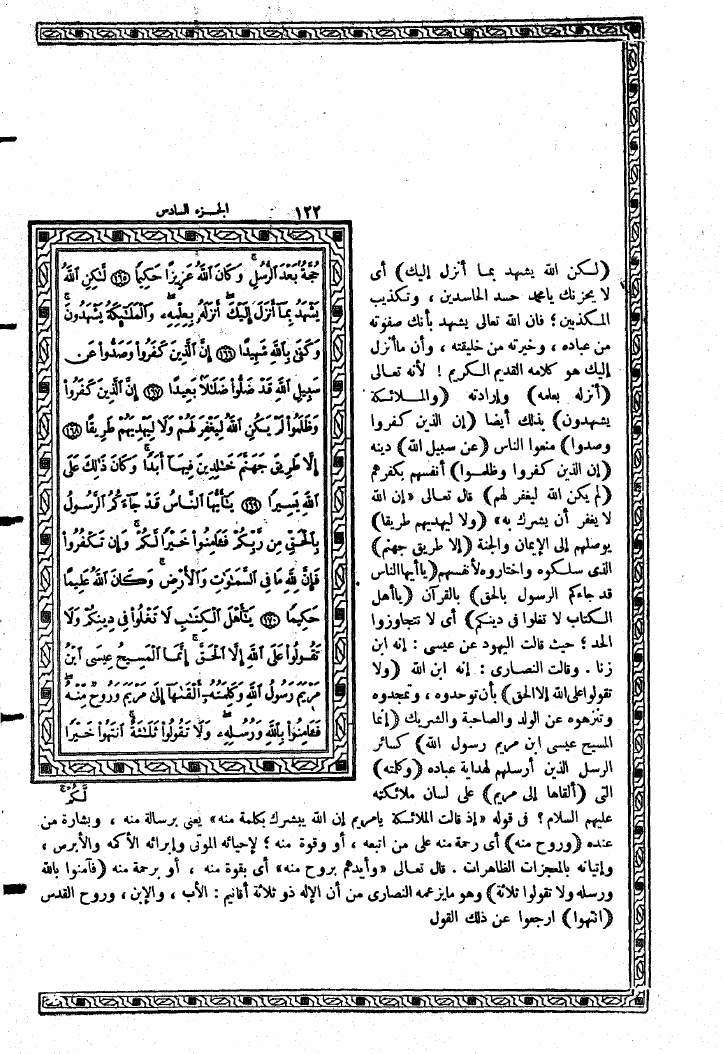 ١٢٢ الجزء السادس
حُجَّةٌۢ بَعْدَ ٱلرُّسُلِ ۚ وَكَانَ ٱللَّهُ عَزِيزًا حَكِيمًا ﴿١٦٥﴾ لَّٰكِنِ ٱللَّهُ
يَشْهَدُ بِمَآ أَنزَلَ إِلَيْكَ ۖ أَنزَلَهُۥ بِعِلْمِهِۦ ۖ وَٱلْمَلَٰٓئِكَةُ يَشْهَدُونَ ۚ
وَكَفَىٰ بِٱللَّهِ شَهِيدًا ﴿١٦٦﴾ إِنَّ ٱلَّذِينَ كَفَرُوا۟ وَصَدُّوا۟ عَن
سَبِيلِ ٱللَّهِ قَدْ ضَلُّوا۟ ضَلَٰلًۢا بَعِيدًا ﴿١٦٧﴾ إِنَّ ٱلَّذِينَ كَفَرُوا۟
وَظَلَمُوا۟ لَمْ يَكُنِ ٱللَّهُ لِيَغْفِرَ لَهُمْ وَلَا لِيَهْدِيَهُمْ طَرِيقًا ﴿١٦٨﴾
إِلَّا طَرِيقَ جَهَنَّمَ خَٰلِدِينَ فِيهَآ أَبَدًا ۚ وَكَانَ ذَٰلِكَ عَلَى
ٱللَّهِ يَسِيرًا ﴿١٦٩﴾ يَٰٓأَيُّهَا ٱلنَّاسُ قَدْ جَآءَكُمُ ٱلرَّسُولُ
بِٱلْحَقِّ مِن رَّبِّكُمْ فَـَٔامِنُوا۟ خَيْرًا لَّكُمْ ۚ وَإِن تَكْفُرُوا۟
فَإِنَّ لِلَّهِ مَا فِى ٱلسَّمَٰوَٰتِ وَٱلْأَرْضِ ۚ وَكَانَ ٱللَّهُ عَلِيمًا
حَكِيمًا ﴿١٧٠﴾ يَٰٓأَهْلَ ٱلْكِتَٰبِ لَا تَغْلُوا۟ فِى دِينِكُمْ وَلَا
تَقُولُوا۟ عَلَى ٱللَّهِ إِلَّا ٱلْحَقَّ ۚ إِنَّمَا ٱلْمَسِيحُ عِيسَى ٱبْنُ
مَرْيَمَ رَسُولُ ٱللَّهِ وَكَلِمَتُهُۥٓ أَلْقَىٰهَآ إِلَىٰ مَرْيَمَ وَرُوحٌ مِّنْهُ ۖ
فَـَٔامِنُوا۟ بِٱللَّهِ وَرُسُلِهِۦ ۖ وَلَا تَقُولُوا۟ ثَلَٰثَةٌ ۚ ٱنتَهُوا۟ خَيْرًا
لَّكُمْ ۚ
(لكن الله يشهد بما أنزل إليك) أى
لا يحزنك يا محمد حسد الحاسدين ، وتكذيب
المكذبين ؛ فان الله تعالى يشهد بأنك صفوته
من عباده ، وخيرته من خليقته ، وأن ما أنزل
إليك هو كلامه القديم الكريم ! لأنه تعالى
(أنزله بعلمه) وإرادته (والملائكة
يشهدون) بذلك أيضا (إن الذين كفروا
وصدوا) منعوا الناس (عن سبيل الله) دينه
(إن الذين كفروا وظلموا) أنفسهم بكفرهم
(لم يكن الله ليغفر لهم) قال تعالى «إن الله
لا يغفر أن يشرك به» (ولا ليهديهم طريقا)
يوصلهم إلى الإيمان والجنة (إلا طريق جهنم)
الذى سلكوه واختاروه لأنفسهم (يا أيها الناس
قد جاءكم الرسول بالحق) بالقرآن (يا أهل
الكتاب لا تغلوا فى دينكم) أى لا تتجاوزوا
الحد ؛ حيث قالت اليهود عن عيسى : إنه ابن
زنا . وقالت النصارى : إنه ابن الله (ولا
تقولوا على الله إلا الحق) بأن توحدوه ، وتمجدوه
وتنزهوه عن الولد والصاحبة والشريك (إنما
المسيح عيسى ابن مريم رسول الله) كسائر
الرسل الذين أرسلهم لهداية عباده (وكلمته)
التى (ألقاها إلى مريم) على لسان ملائكته
عليهم السلام ؟ فى قوله «إذ قالت الملائكة يا مريم إن الله يبشرك بكلمة منه» يعنى برسالة منه ، وبشارة من
عنده (وروح منه) أى رحمة منه على من اتبعه ، أو وقوة منه ؛ لإحيائه الموتى وإبرائه الأكمه والأبرص ،
وإتيانه بالمعجزات الظاهرات . قال تعالى «وأيدهم بروح منه» أى بقوة منه ، أو برحمة منه (فآمنوا بالله
ورسله ولا تقولوا ثلاثة) وهو ما يزعمه النصارى من أن الإله ذو ثلاثة أقانيم : الأب ، والإبن ، وروح القدس
(انتهوا) ارجعوا عن ذلك القول